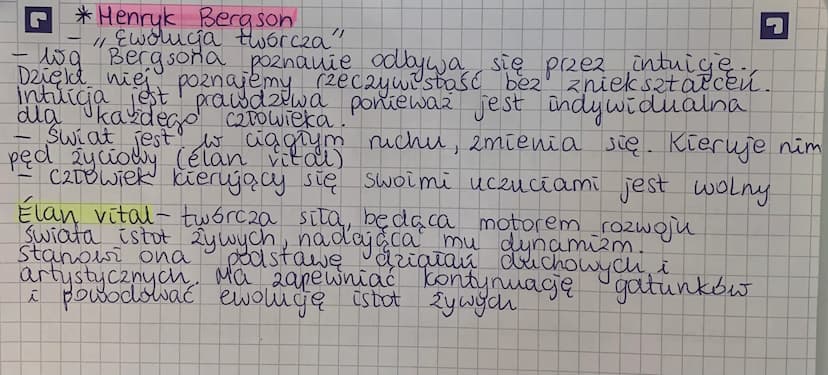 * Henryk Bergson
- „Ewolucja twórcza"
- wg Bergsona poznanie odbywa się przez intuicję.
Dzięki niej poznajemy rzeczywistość bez zniekształceń.
Intuicja jest prawdziwa ponieważ jest indywidualna
dla każdego człowieka.
- Świat jest w ciągłym ruchu, zmienia się. Kieruje nim
pęd życiowy (élan vital)
- człowiek kierujący się swoimi uczuciami jest wolny
Élan vital - twórcza siła, będąca motorem rozwoju
świata istot żywych, nadająca mu dynamizm.
Stanowi ona podstawę działań duchowych i
artystycznych. Ma zapewniać kontynuację gatunków
i powodować ewolucję istot żywych